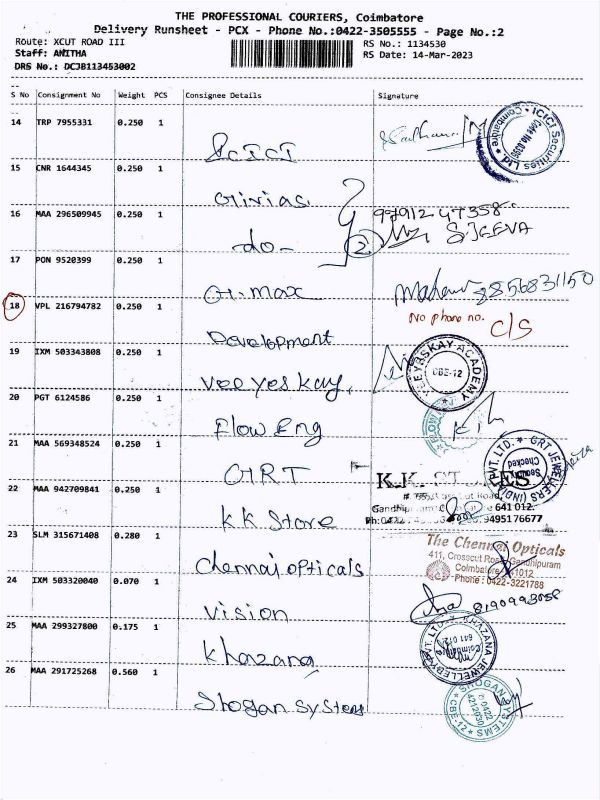 THE PROFESSIONAL COURIERS, Coimbatore
Delivery Runsheet - PCX - Phone No.:0422-3505555 - Page No.:2
Route: XCUT ROAD III RS No.: 1134530
Staff: ANITHA RS Date: 14-Mar-2023
DRS No.: DCJB113453002
S No Consignment No Weight PCS Consignee Details Signature
14 TRP 7955331 0.250 1
ICICI
ICICI Securities Ltd * Coimbatore *
15 CNR 1644345 0.250 1
Olivias
16 MAA 296509945 0.250 1
do-
2
SJEEVA
17 PON 9520399 0.250 1
O.max
8856831150
18 VPL 216794782 0.250 1
Development
No phone no. C/S
19 IXM 503343808 0.250 1
Vee yes kay
VEEYESKAY ACADEMY
CBE-12
20 PGT 6124586 0.250 1
Flow Eng
21 MAA 569348524 0.250 1
GRT
GRT JEWELLERS (INDIA) PVT. LTD.
Security Checked
22 MAA 942709841 0.250 1
K K Store
K.K.
641 012.
9495176677
23 SLM 315671408 0.280 1
Chennai opticals
The Chennai Opticals
411, Crosscut Road, Gandhipuram
Coimbatore
Phone : 0422-3221788
24 IXM 503320040 0.070 1
Vision
25 MAA 299327800 0.175 1
Khazana
KHAZANA JEWELLERY PVT. LTD.
Coimbatore
641 012
26 MAA 291725268 0.560 1
Shogan Systems
SHOGAN SYSTEMS
0422
4212030
CBE-12